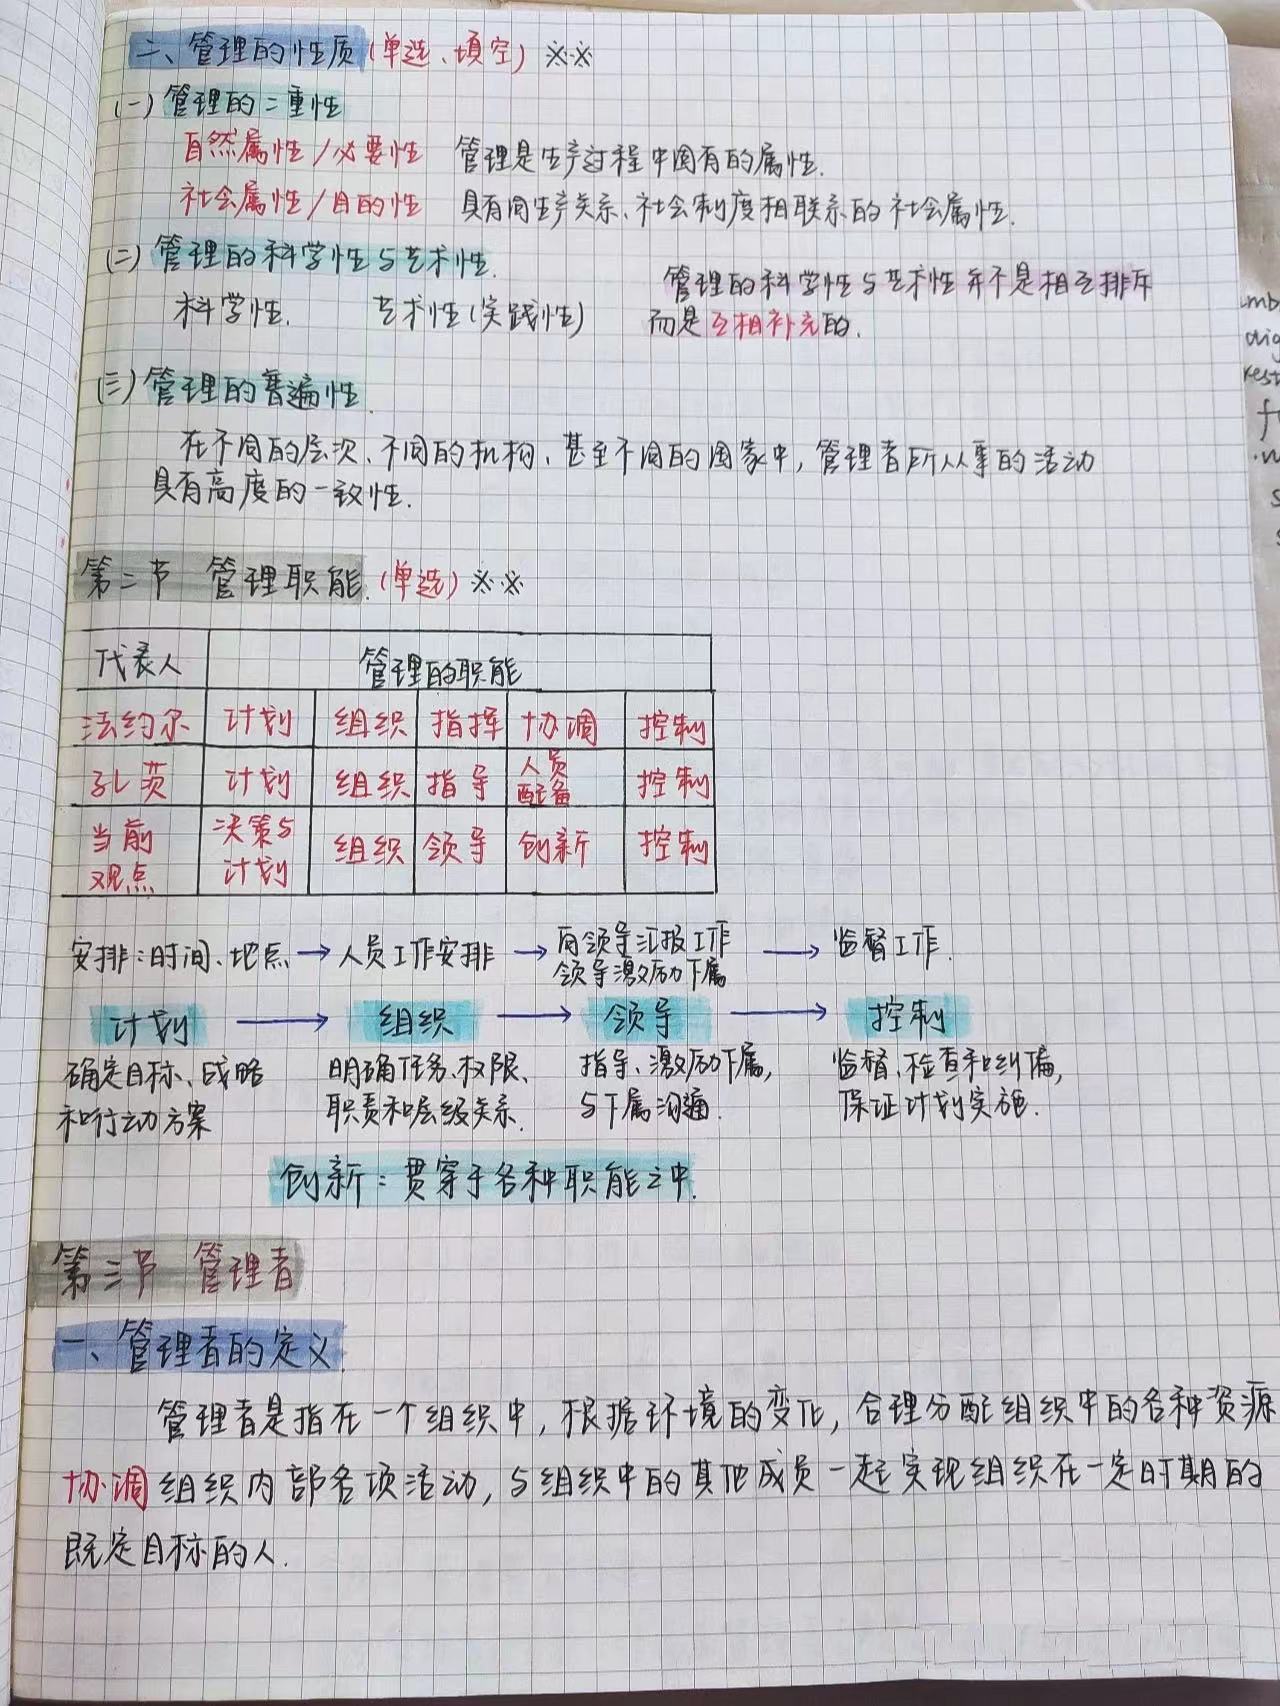 二、管理的性质(单选、填空) ※※
(一)管理的二重性
自然属性/必要性 管理是生产过程中固有的属性.
社会属性/目的性 具有同生产关系、社会制度相联系的社会属性.
(二)管理的科学性与艺术性.
管理的科学性与艺术性并不是相互排斥
科学性. 艺术性(实践性) 而是互相补充的.
(三)管理的普遍性.
在不同的层次、不同的机构、甚至不同的国家中,管理者所从事的活动
具有高度的一致性.
第二节 管理职能.(单选)※※
代表人 管理的职能
法约尔 计划 组织 指挥 协调 控制
孔茨 计划 组织 指导 人员配备 控制
当前观点 决策与计划 组织 领导 创新 控制
安排:时间、地点→人员工作安排→向领导汇报工作→监督工作.
领导激励下属
计划→组织→领导→控制
确定目标、战略 明确任务、权限、 指导、激励下属, 监督、检查和纠偏,
和行动方案 职责和层级关系. 与下属沟通. 保证计划实施.
创新:贯穿于各种职能之中.
第三节 管理者
一、管理者的定义.
管理者是指在一个组织中,根据环境的变化,合理分配组织中的各种资源
协调组织内部各项活动,与组织中的其他成员一起实现组织在一定时期的
既定目标的人.